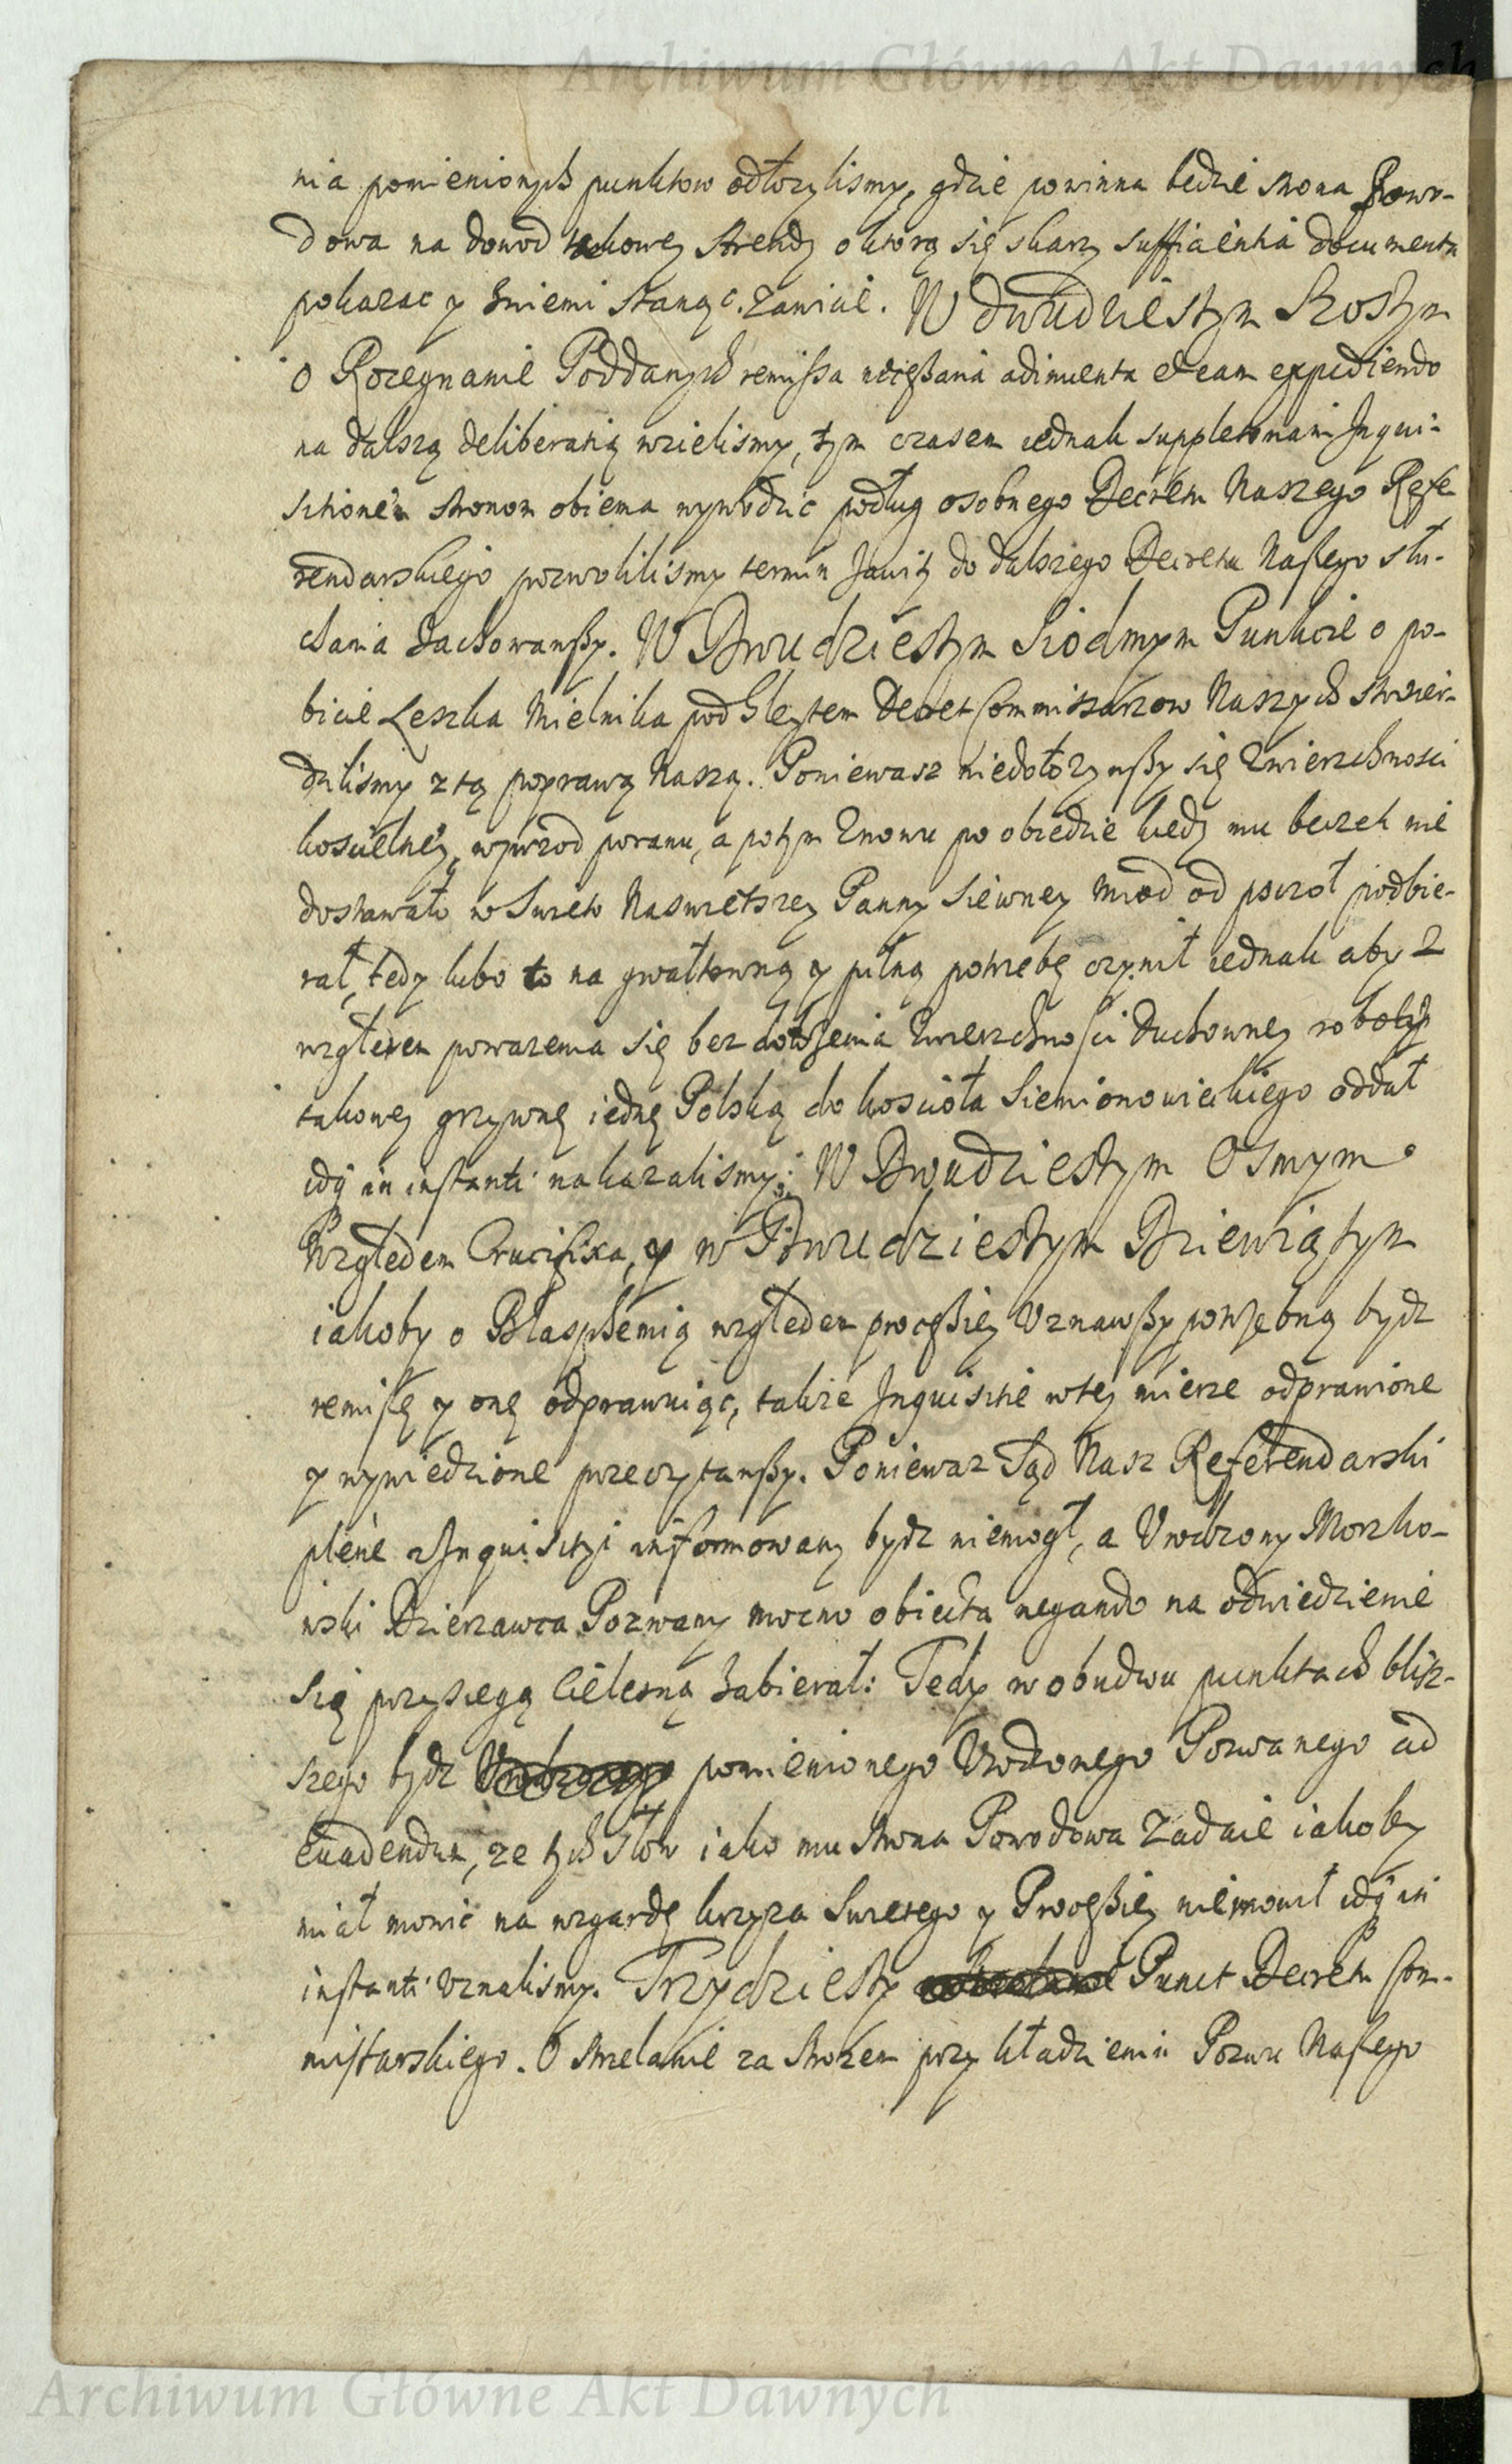 Archiwum Główne Akt Dawnych
nia pomienionych punktow odłozylismy, gdzie powinna będzie strona Powo-
dowa na dowod takowey Arendy o ktorą się skarzy sufficientia documenta
pokazac y zniemi stanąc. zawicie. W dwudziestym szostym
o Rozegnanie Poddanych remissa adinuenta et eam expediendo
na dalszą deliberatią wzielismy, tym czasem iednak suppletoriam Inqui-
sitionem stronom obiema wywodzic podług osobnego Decretu Naszego Refe-
rendarskiego pozwolilismy termin zawity do dalszego Decretu Naszego słu-
chania zachowawszy. W Dwudziestym Siodmym Punkcie o po-
bicie Leszka Mielnika pod Gleytem Decret Commissarzow Naszych stwier-
dzilismy z tą poprawą Naszą. Poniewasz niedołozywszy się Zwierzchnosci
koscielney, wprzod poranu, a potym znowu po obiedzie kiedy mu beczek nie
dostawało w Swieto Naswietszey Panny Siewney miod od pszczoł podbie-
rał, tedy lubo to na gwałtowną y pilną potrzebę czynił iednak aby z
względem powazenia się bez dołozenia Zwierzchnosci Duchowney roboty
takowey grzywnę iednę Polską do koscioła Siemionowickiego oddał
idą in instanti nakazalismy; W Dwudziestym Osmym
Względem Crucifixa, y w Dwudziestym Dziewiątym
iakoby o Blasphemią względem processiey Uznawszy potrzebną bydz
remissę y onę odprawuiąc, takze Inquisitie w tey mierze odprawione
y wywiedzione przeczytawszy. Poniewaz Sąd Nasz Referendarski
plene z Inquisityi informowany bydz niemogł, a Urodzony Morzko-
wski Dzierzawca Pozwany mocno obiecta negando na odwiedzienie
się przysięgą cielesną zabierał: Tedy w obudwu punktach bliz-
szego bydz pomienionego Urodzonego Pozwanego ad
euadendum, ze tych słow iako mu strona Powodowa zadaie iakoby
miał mowic na wzgardę krzyza Swietego y Processiey niemowił idą in
instanti uznalismy. Trzydziesty Punct Decretu Com-
missarskiego. O strzelanie za strozem przy kładzieniu Pozwu Naszego
Archiwum Główne Akt Dawnych